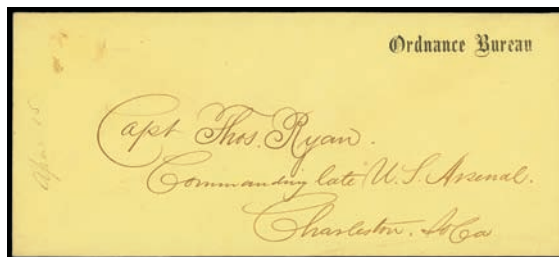 Ordnance Bureau
Capt Thos. Ryan.
Commanding late U.S. Arsenal.
Charleston. So Ca